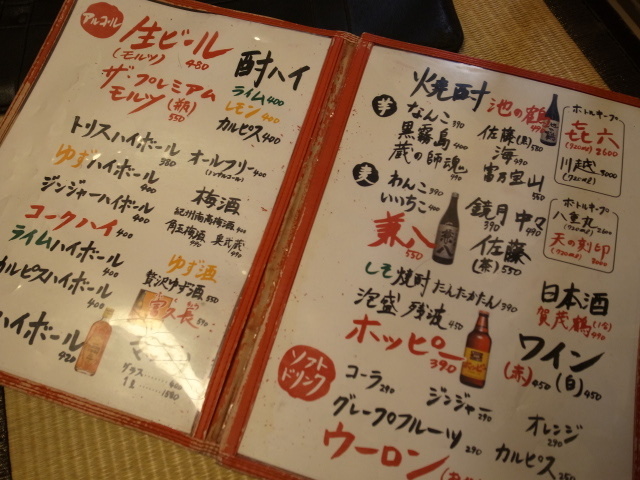 アルコール
生ビール
(モルツ) 480
ザ・プレミアム
モルツ(瓶)
550
酎ハイ
ライム 400
レモン 400
カルピス 400
トリスハイボール
380
ゆずハイボール
400
ジンジャーハイボール
400
コークハイ
400
ライムハイボール
400
カルピスハイボール
400
ハイボール
420
オールフリー
400
梅酒
紀州南高梅酒 490
角玉梅酒 490
ゆず酒
贅沢ゆず酒 550
グラス 400
1L
焼酎
芋
なんこ 390
黒霧島 400
蔵の師魂 490
池の鶴
佐藤(黒) 550
海 490
富乃宝山 550
ボトルキープ
㐂六
(720ml) 2600
川越
(720ml) 3000
麦
わんこ 390
いいちこ 400
兼八 550
鏡月 390
中々 490
佐藤
(茶) 550
ボトルキープ
八重丸 2600
(720ml)
天の刻印
(720ml) 3000
しそ焼酎 たんたかたん 390
泡盛 残波 450
ホッピー
390
日本酒
賀茂鶴
490
ワイン
(赤) 450 (白) 450
ソフト
ドリンク
コーラ 290
ジンジャー 290
オレンジ
290
グレープフルーツ 290
カルピス
ウーロン